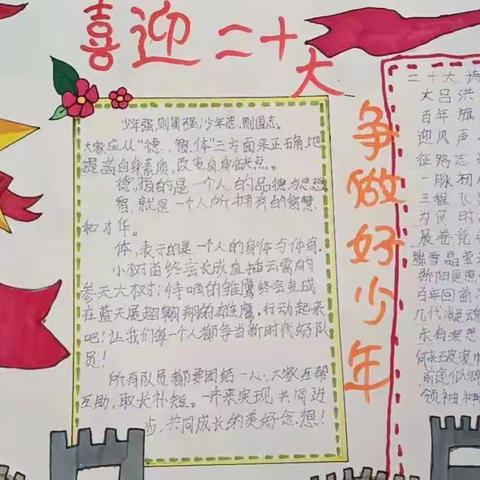 喜迎二十大
少年强,则国强,少年志,则国志。
大家应从“德、智、体”三方面来正确地
提高自身素质,改克自身缺点。
德,指的是一个人的品德与思想
智,就是一个人所拥有的智慧
和才华。
体,表示的是一个人的身体与体育。
小树苗终会长成直插云霄的
参天大树;待哺的雏鹰终会见成
在蓝天展翅翱翔的雄鹰。行动起来
吧!让我们每一个人都争当新时代好队
员!
所有队员都要团结一心,大家互帮
互助,取长补短。一齐来实现共同进
步,共同成长的美好念想!
争做好少年
二十大诗
大吕洪
百年旗
迎风声
征路志
一脉初
三程飞
为民时
展卷竞
瑞雪晶莹
骄阳更愿
百年回首
几代
永有
何来
前途似
领袖神